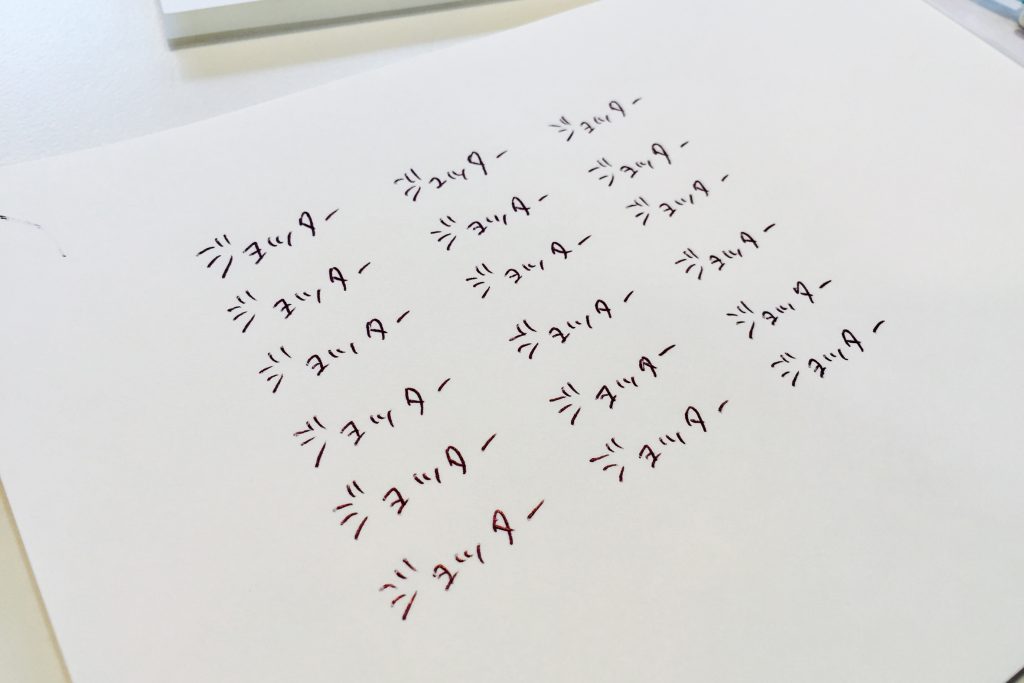 ジョッター ジョッター ジョッター
ジョッター ジョッター ジョッター
ジョッター ジョッター ジョッター
ジョッター ジョッター ジョッター
ジョッター ジョッター ジョッター
ジョッター ジョッター ジョッター